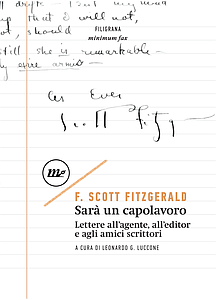 p that I will not,
FILIGRANA
ot, should
minimum fax
till she is remarkable –
As Ever
Scott Fitzg
mf
F. SCOTT FITZGERALD
Sarà un capolavoro
Lettere all'agente, all'editor
e agli amici scrittori
A CURA DI LEONARDO G. LUCCONE